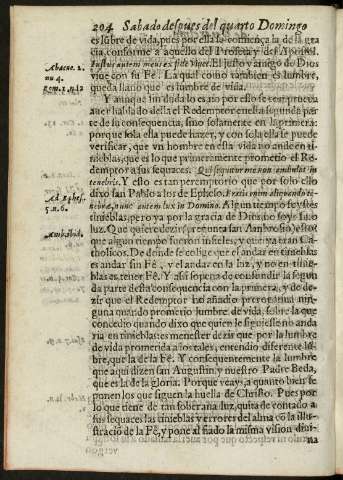 204 Sabado despues del quarto Domingo
es lumbre de vida, pues por ella se comiença la de la gra
cia, conforme a aquello del Profeta y del Apostol.
Iustus autem meus ex fide viuet. El justo y amigo de Dios
viue con su Fè. La qual como tambien es lumbre,
queda llano que es lumbre de vida.
Abacuc. 2.
nu 4.
Rom. 1. n. 17
Y aunque sin duda lo es no por esso se sea prueua
auer hablado della el Redemptor en esta segunda par
te de su consequencia, sino solamente en la primera:
porque sola ella puede hazer, y con sola ella se puede
verificar, que vn hombre en esta vida no ande en ti-
nieblas, que es lo que primeramente prometio el Re-
demptor a sus sequaces. Qui sequitur me non ambulat in
tenebris. Y esto es tan perceptorio que por solo ello
dixo san Pablo a los de Epheso. Eratis enim aliquando te-
nebræ, nunc autem lux in Domino. Algun tiempo fuystes
tinieblas, pero ya por la gracia de Dios no soys sino
luz. Que quiere dezir (pregunta san Ambrosio) esto?
que algun tiempo fueron infieles, y que ya eran Ca-
tholicos. De donde se colige que el andar en tinieblas
es andar sin Fè, y el andar en la luz, y no en tinie-
blas es tener Fè. Y assi sopena de confundir la segun
da parte desta consequencia con la primera, y de de-
zir que el Redemptor no añadio prerrogatiua nin-
guna quando prometio lumbre de vida, sobre la que
concedio quando dixo que quien le siguiesse no anda
ria en tinieblas: es menester dezir que por la lumbre
de vida prometida a los tales, entendio diferente lū-
bre, que la de la Fè. Y consequentemente la lumbre
que aqui dizen san Augustin y nuestro Padre Beda,
que es la de la gloria. Porque veays, a quanto bien se
ponen los que siguen la huella de Christo. Pues por
lo que tiene de tan soberana luz, quita de contado a
sus sequaces las tinieblas y errores del alma cō la illu-
stracion de la Fè, y pone al fiado la misma vision diui-
na
Ad Ephes.
5. n. 6.
Amb. ibid.